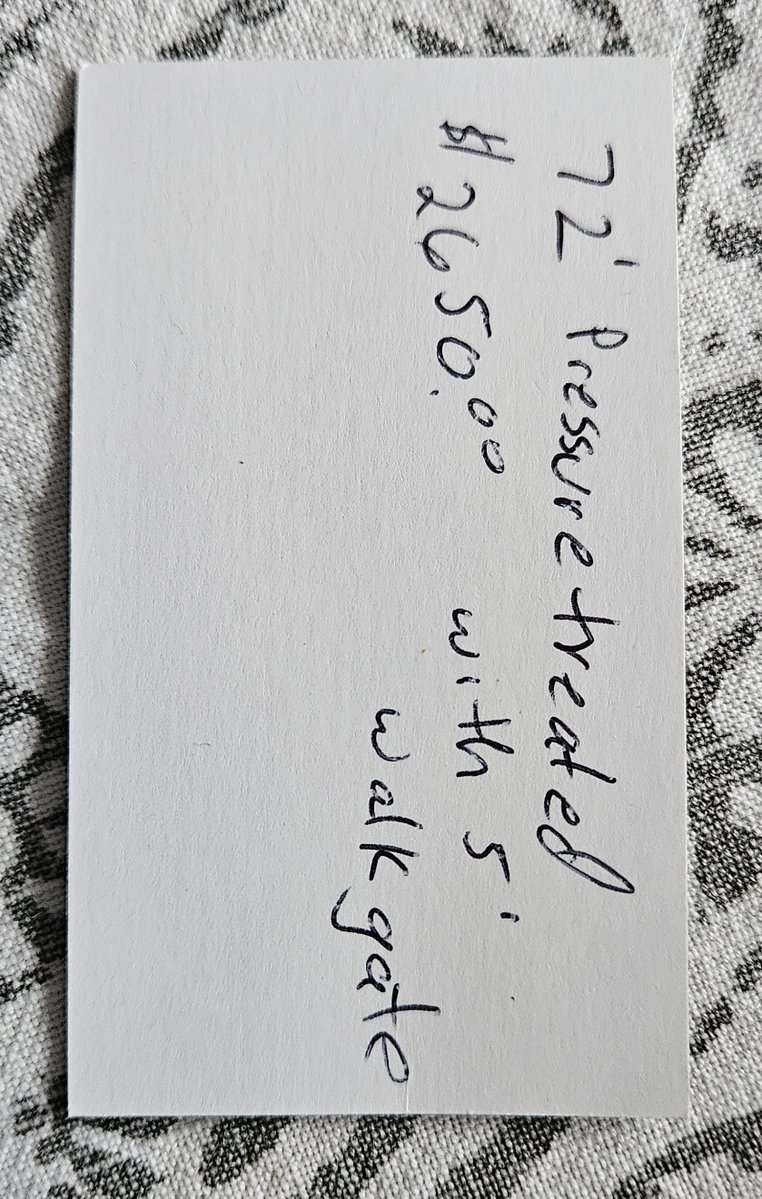 72' Pressure treated
$2650.00 with 5'
walk gate